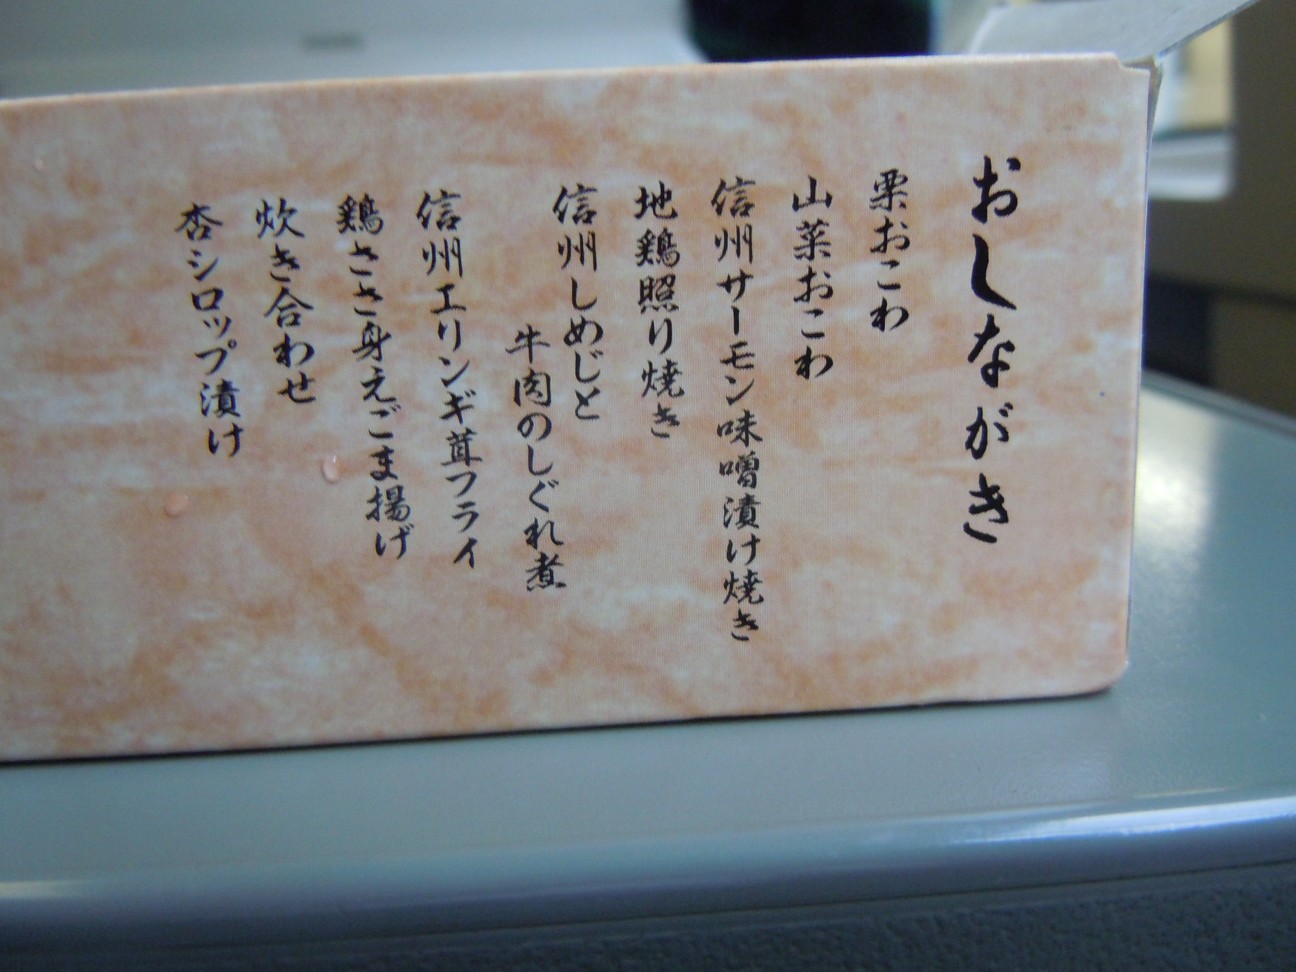 おしながき
栗おこわ
山菜おこわ
信州サーモン味噌漬け焼き
地鶏照り焼き
信州しめじと
牛肉のしぐれ煮
信州エリンギ茸フライ
鶏ささ身えごま揚げ
炊き合わせ
杏シロップ漬け